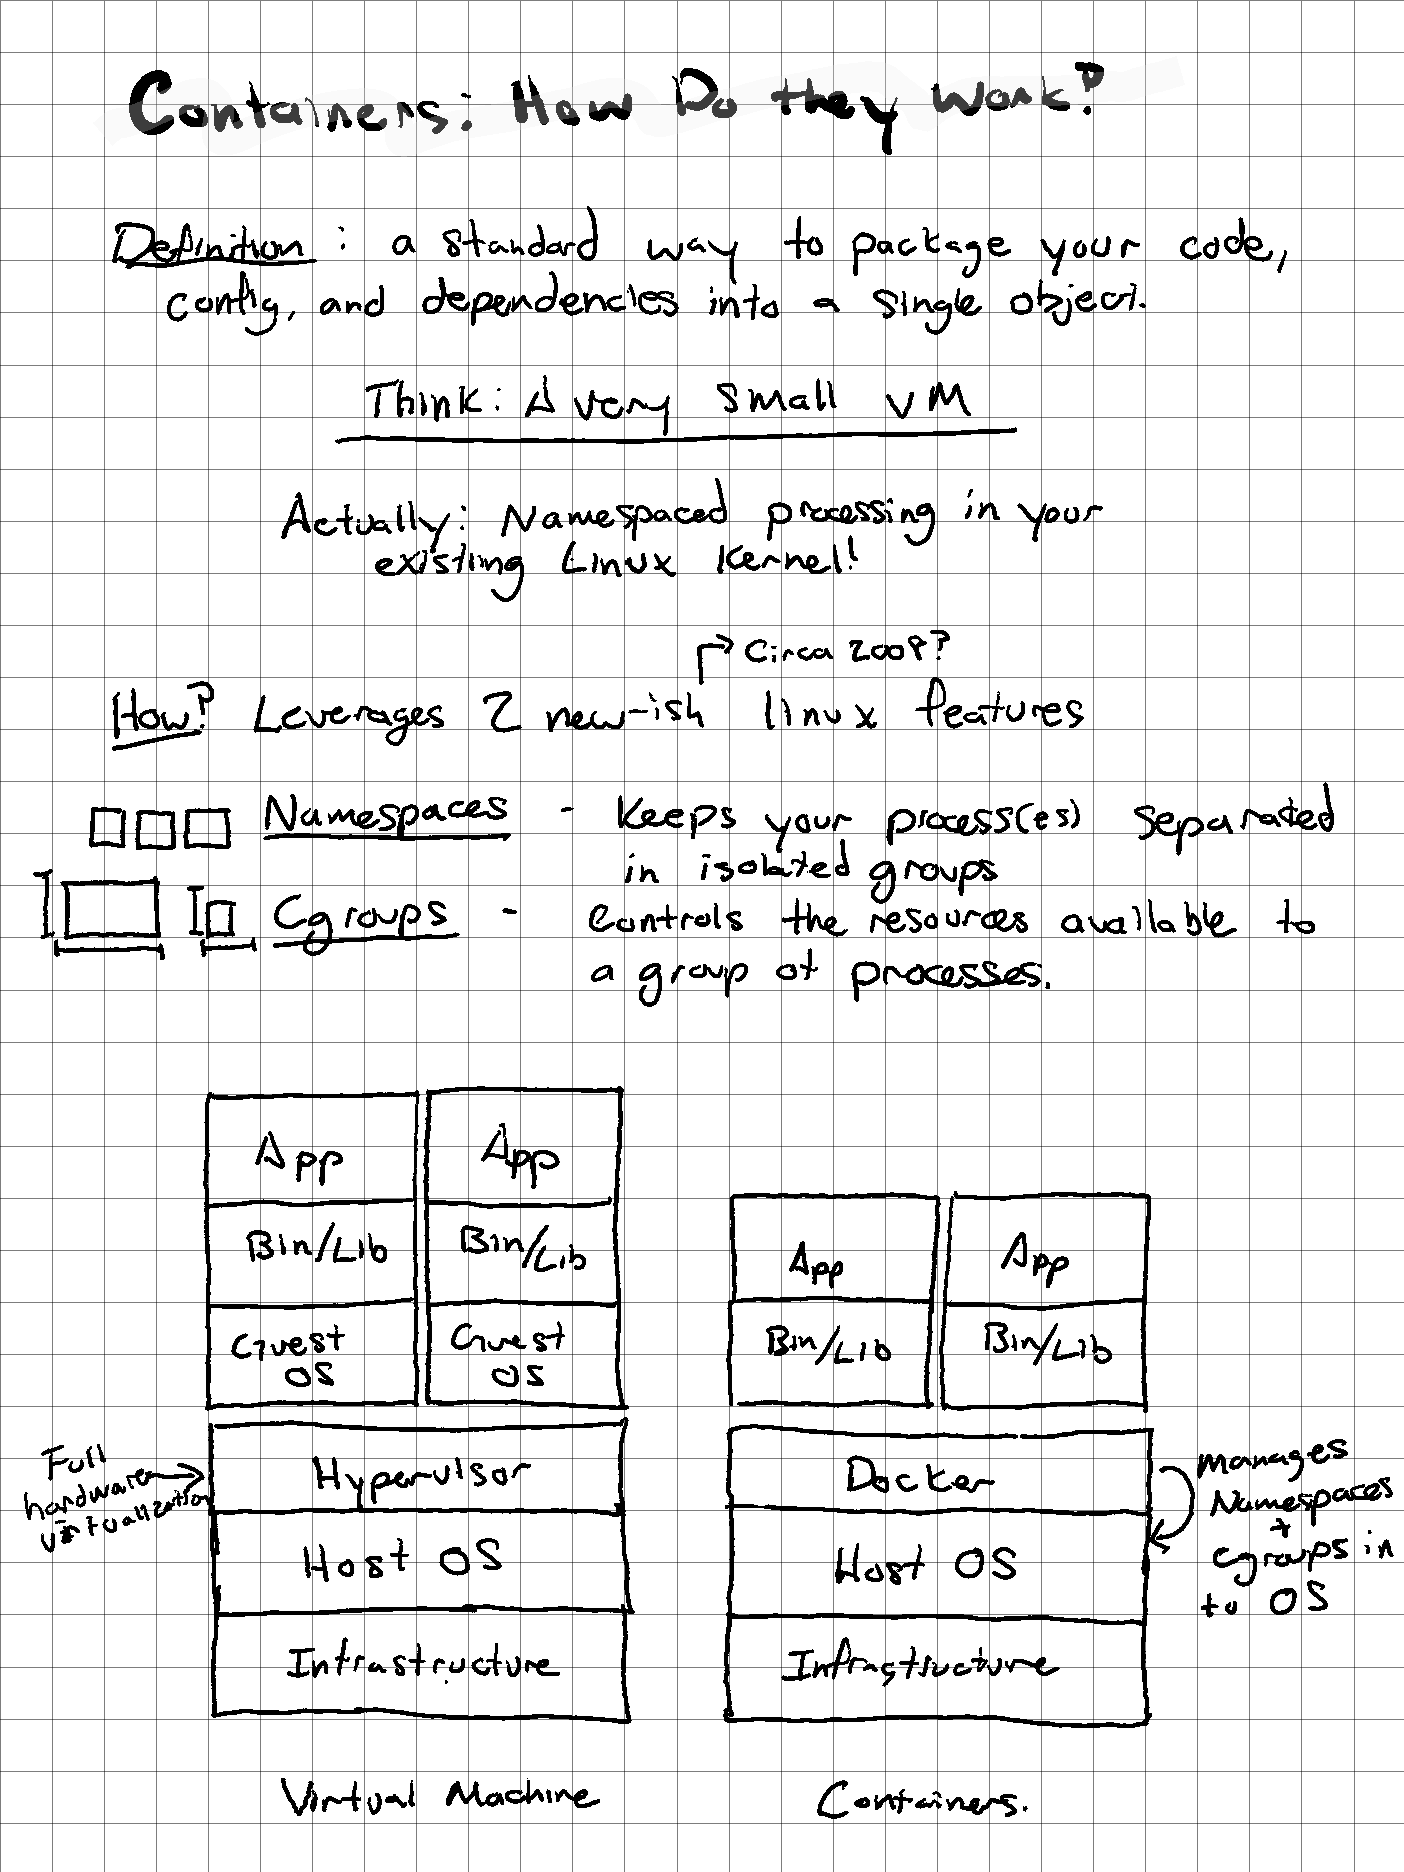 Containers: How Do they Work?
Definition: a standard way to package your code,
config, and dependencies into a single object.
Think: A very small VM
Actually: Namespaced processing in your
existing Linux Kernel!
Circa 2008?
How? Leverages 2 new-ish linux features
Namespaces - Keeps your process(es) separated
in isolated groups
Cgroups - Controls the resources available to
a group of processes.
App App
Bin/Lib Bin/Lib
Guest Guest
OS OS
Full
hardware
virtualization
Hypervisor
Host OS
Infrastructure
Virtual Machine
App App
Bin/Lib Bin/Lib
Docker
Host OS
Infrastructure
Manages
Namespaces
+
cgroups in
to OS
Containers.